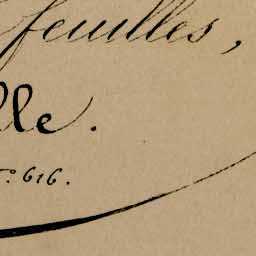 feuilles,
lle.
º 616.